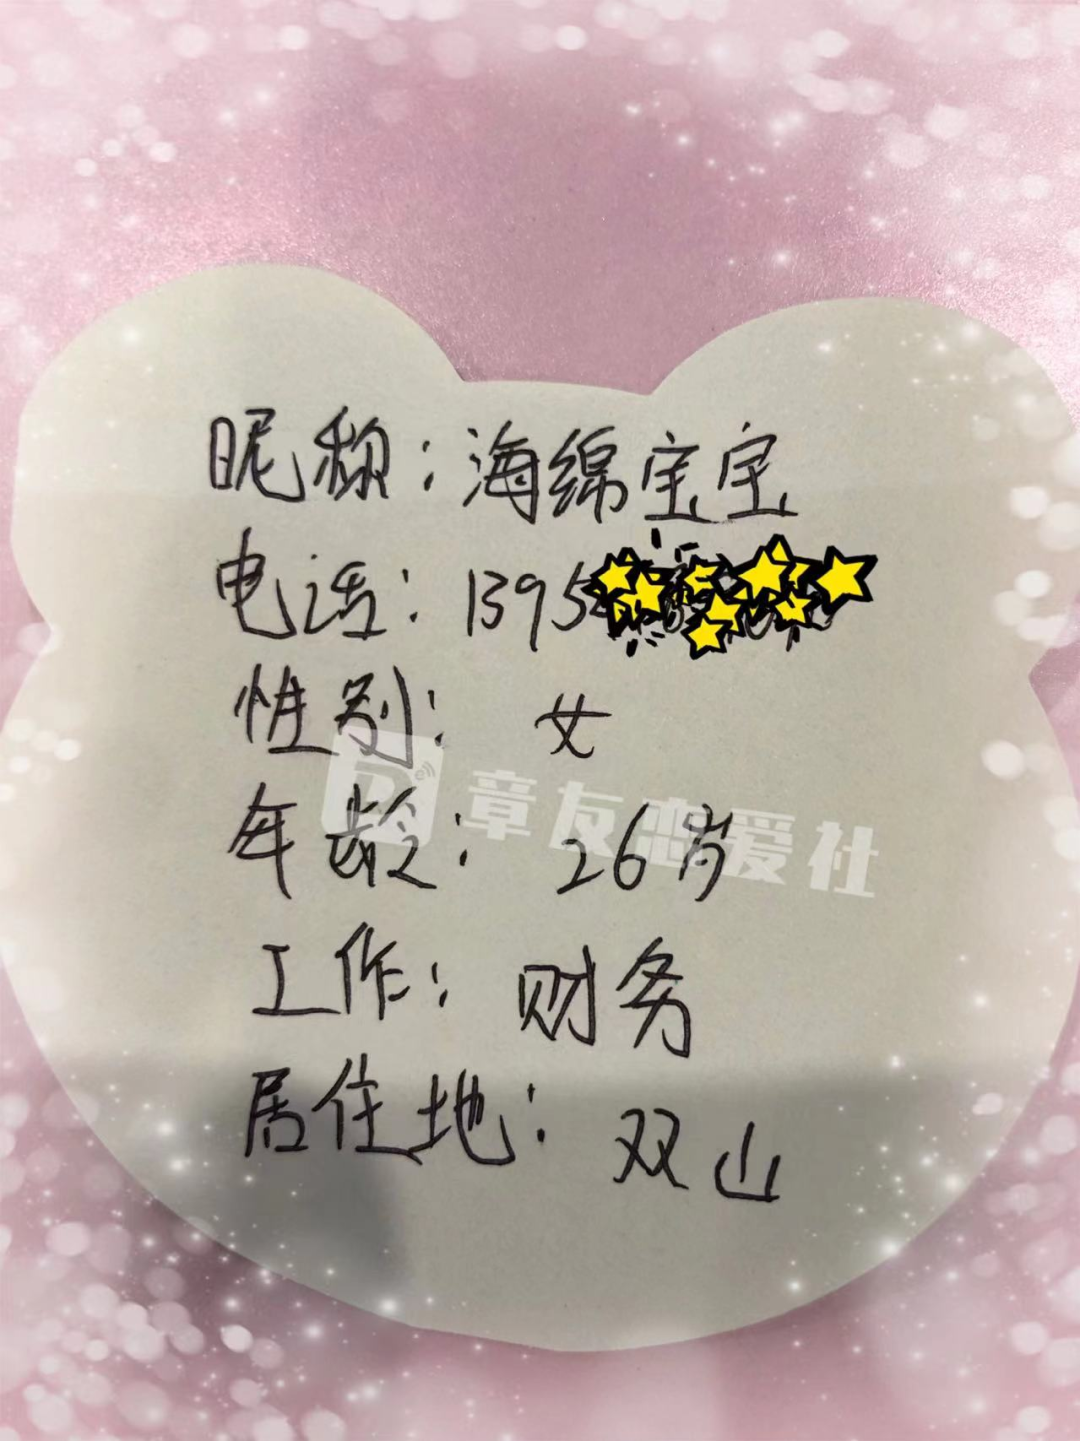 昵称：海绵宝宝
电话：1395
性别：女
章友恋爱社
年龄：26岁
工作：财务
居住地：双山